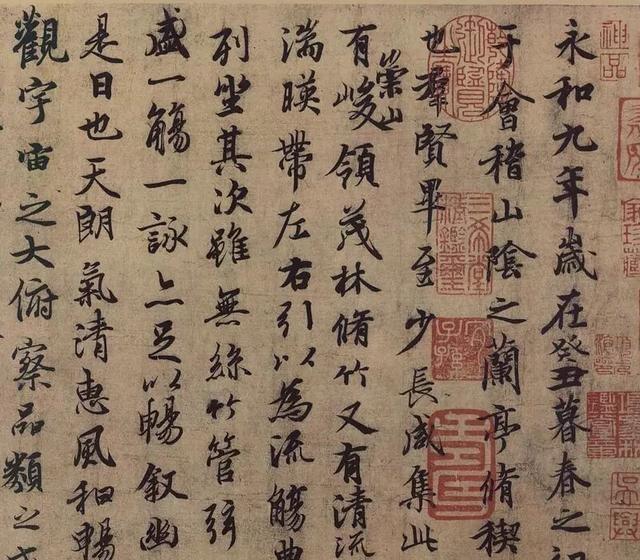 神品
永和九年歲在癸丑暮春之初
于會稽山陰之蘭亭脩稧
也羣賢畢至少長咸集此
有崇山峻領茂林脩竹又有清流
湍暎帶左右引以為流觴曲
列坐其次雖無絲竹管弦
盛一觴一詠亦足以暢叙幽
是日也天朗氣清惠風和暢
觀宇宙之大俯察品類之